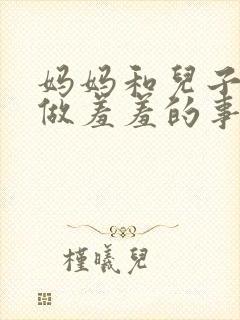 妈妈和兒子
做羞羞的事
槿曦兒